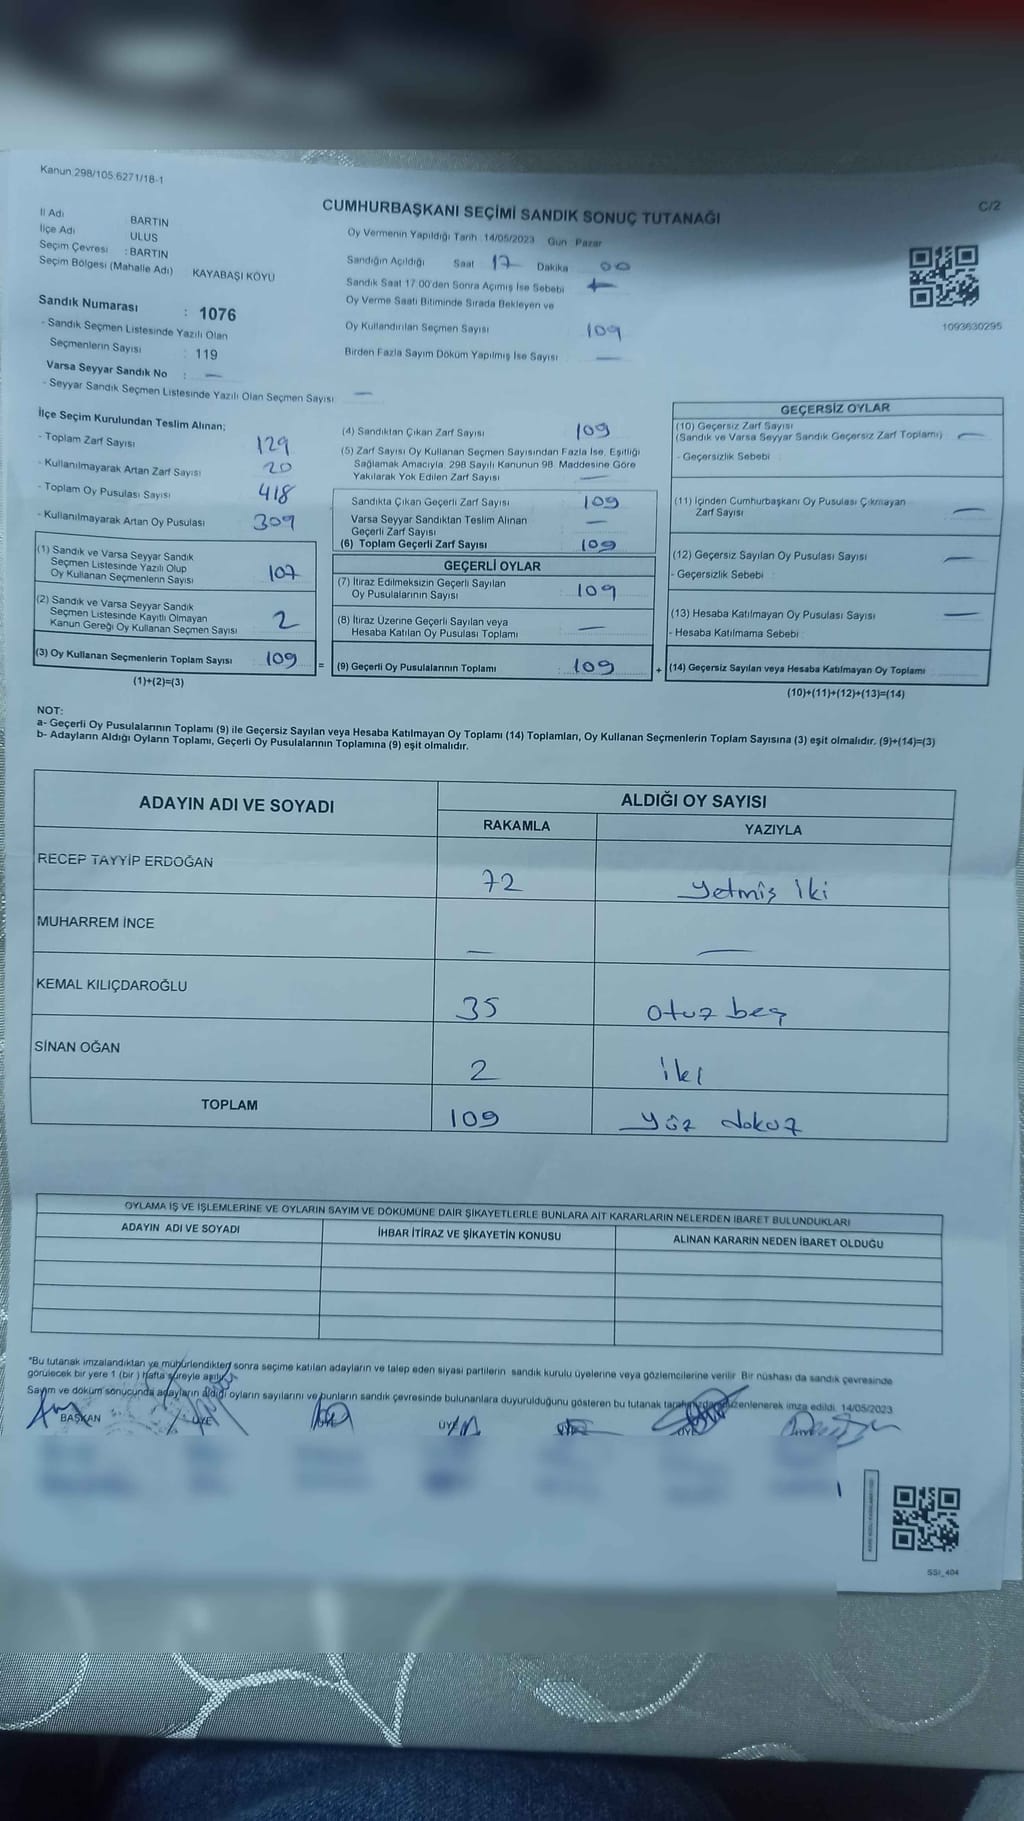 Kanun 298/105 6271/18-1
C/2
CUMHURBAŞKANI SEÇİMİ SANDIK SONUÇ TUTANAĞI
İl Adı BARTIN
İlçe Adı ULUS
Seçim Çevresi : BARTIN
Seçim Bölgesi (Mahalle Adı) KAYABAŞI KÖYÜ
Oy Vermenin Yapıldığı Tarih 14/05/2023 Gün Pazar
Sandığın Açıldığı Saat 17 Dakika 00
Sandık Saat 17:00'den Sonra Açımış İse Sebebi —
Oy Verme Saati Bitiminde Sırada Bekleyen ve
Oy Kullandırılan Seçmen Sayısı 109
Birden Fazla Sayım Döküm Yapılmış İse Sayısı —
1093630295
Sandık Numarası : 1076
- Sandık Seçmen Listesinde Yazılı Olan
Seçmenlerin Sayısı 119
Varsa Seyyar Sandık No : —
- Seyyar Sandık Seçmen Listesinde Yazılı Olan Seçmen Sayısı —
İlçe Seçim Kurulundan Teslim Alınan;
- Toplam Zarf Sayısı 129
- Kullanılmayarak Artan Zarf Sayısı 20
- Toplam Oy Pusulası Sayısı 418
- Kullanılmayarak Artan Oy Pusulası 309
(1) Sandık ve Varsa Seyyar Sandık
Seçmen Listesinde Yazılı Olup
Oy Kullanan Seçmenlerin Sayısı 107
(2) Sandık ve Varsa Seyyar Sandık
Seçmen Listesinde Kayıtlı Olmayan
Kanun Gereği Oy Kullanan Seçmen Sayısı 2
(3) Oy Kullanan Seçmenlerin Toplam Sayısı 109 =
(1)+(2)=(3)
(4) Sandıktan Çıkan Zarf Sayısı 109
(5) Zarf Sayısı Oy Kullanan Seçmen Sayısından Fazla İse, Eşitliği
Sağlamak Amacıyla, 298 Sayılı Kanunun 98. Maddesine Göre
Yakılarak Yok Edilen Zarf Sayısı —
Sandıkta Çıkan Geçerli Zarf Sayısı 109
Varsa Seyyar Sandıktan Teslim Alınan
Geçerli Zarf Sayısı —
(6) Toplam Geçerli Zarf Sayısı 109
GEÇERLİ OYLAR
(7) İtiraz Edilmeksizin Geçerli Sayılan
Oy Pusulalarının Sayısı 109
(8) İtiraz Üzerine Geçerli Sayılan veya
Hesaba Katılan Oy Pusulası Toplamı —
(9) Geçerli Oy Pusulalarının Toplamı 109 +
GEÇERSİZ OYLAR
(10) Geçersiz Zarf Sayısı
(Sandık ve Varsa Seyyar Sandık Geçersiz Zarf Toplamı) —
- Geçersizlik Sebebi
(11) İçinden Cumhurbaşkanı Oy Pusulası Çıkmayan
Zarf Sayısı —
(12) Geçersiz Sayılan Oy Pusulası Sayısı —
- Geçersizlik Sebebi
(13) Hesaba Katılmayan Oy Pusulası Sayısı —
- Hesaba Katılmama Sebebi
(14) Geçersiz Sayılan veya Hesaba Katılmayan Oy Toplamı
(10)+(11)+(12)+(13)=(14)
NOT:
a- Geçerli Oy Pusulalarının Toplamı (9) ile Geçersiz Sayılan veya Hesaba Katılmayan Oy Toplamı (14) Toplamları, Oy Kullanan Seçmenlerin Toplam Sayısına (3) eşit olmalıdır. (9)+(14)=(3)
b- Adayların Aldığı Oyların Toplamı, Geçerli Oy Pusulalarının Toplamına (9) eşit olmalıdır.
ADAYIN ADI VE SOYADI ALDIĞI OY SAYISI
RAKAMLA YAZIYLA
RECEP TAYYİP ERDOĞAN 72 Yetmiş iki
MUHARREM İNCE — —
KEMAL KILIÇDAROĞLU 35 otuz beş
SİNAN OĞAN 2 iki
TOPLAM 109 Yüz dokuz
OYLAMA İŞ VE İŞLEMLERİNE VE OYLARIN SAYIM VE DÖKÜMÜNE DAİR ŞİKAYETLERLE BUNLARA AİT KARARLARIN NELERDEN İBARET BULUNDUKLARI
ADAYIN ADI VE SOYADI İHBAR İTİRAZ VE ŞİKAYETİN KONUSU ALINAN KARARIN NEDEN İBARET OLDUĞU
*Bu tutanak imzalandıktan ve mühürlendikten sonra seçime katılan adayların ve talep eden siyasi partilerin sandık kurulu üyelerine veya gözlemcilerine verilir. Bir nüshası da sandık çevresinde
görülecek bir yere 1 (bir) hafta süreyle asılır.
Sayım ve döküm sonucunda adayların aldığı oyların sayılarını ve bunların sandık çevresinde bulunanlara duyurulduğunu gösteren bu tutanak tarafımızdan düzenlenerek imza edildi. 14/05/2023
BAŞKAN ÜYE ÜYE
SSI_404